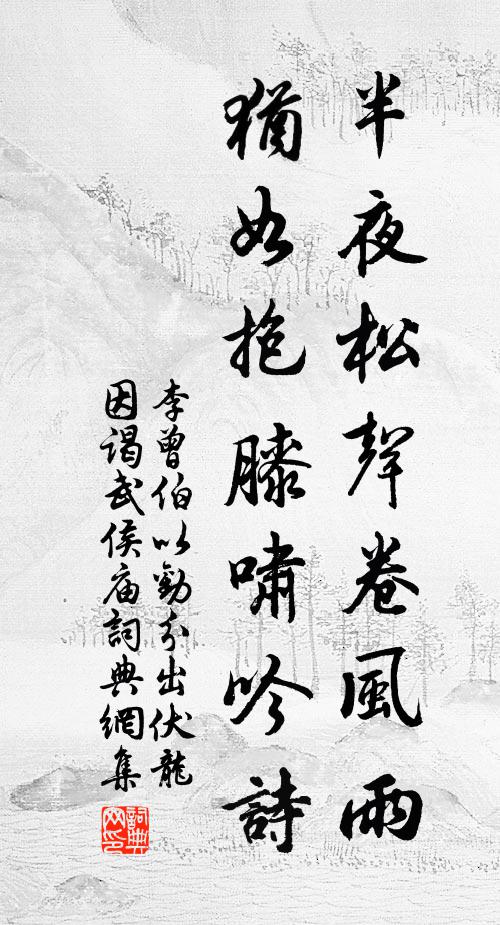 半夜松聲卷風雨
猶如抱膝嘯吟詩
李曾伯以勸分出伏龍
因謁武侯庙詞典網集
詞典网印